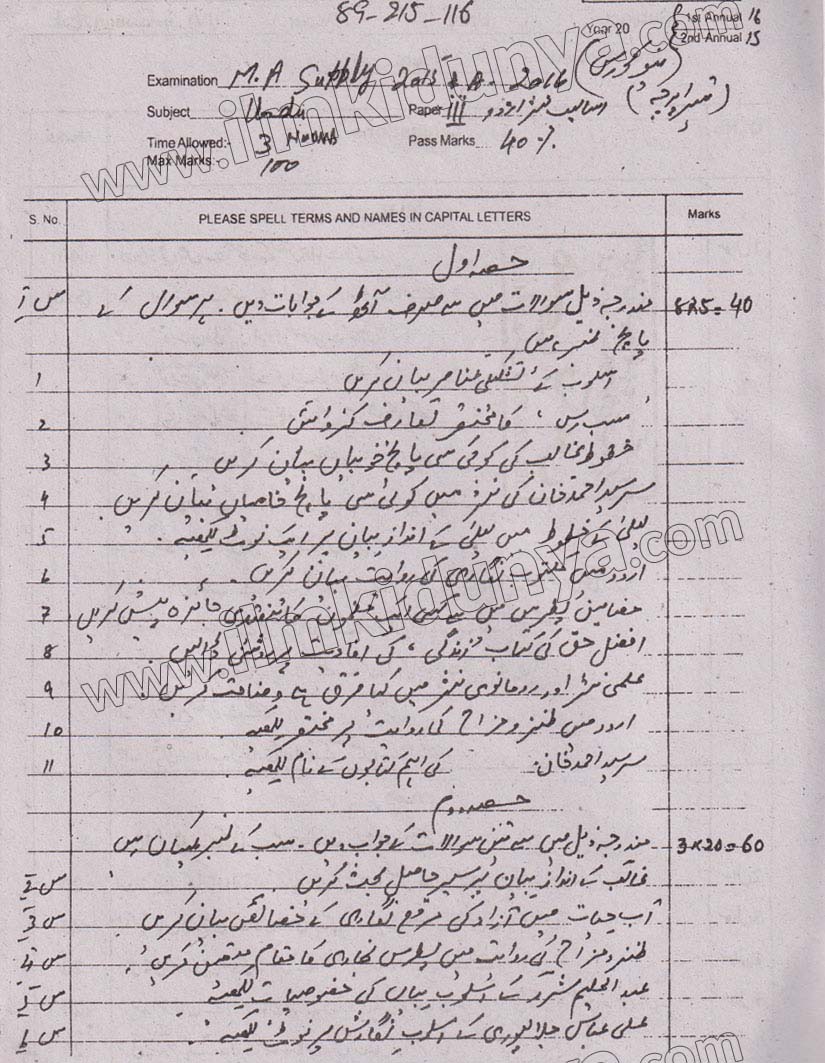 89-215-116
Year 20
1st Annual 16
2nd Annual 15
Examination M.A Supply 2015 & A. 2016
Subject Urdu Paper III اسالیب نثر اردو (تیسرا پرچہ)
Time Allowed:- 3 Hours Pass Marks 40%
Max Marks:- 100
S. No. PLEASE SPELL TERMS AND NAMES IN CAPITAL LETTERS Marks
حصہ اول
س 1 مندرجہ ذیل سوالات میں سے صرف آٹھ کے جوابات دیں۔ ہر سوال کے 8x5=40
پانچ نمبر ہیں
1 اسلوب کے تشکیلی عناصر بیان کریں
2 سب رس، کا مختصر تعارف کروائیں
3 خطوط غالب کی کوئی سی پانچ خوبیاں بیان کریں
4 سرسید احمد خان کی نثر میں کوئی سی پانچ خامیاں بیان کریں
5 کے خطوط میں کے انداز بیان پر ایک نوٹ لکھیے۔
6 اردو میں نگاری کی روایت بیان کریں۔
7 مضامین پطرس میں سے کسی ایک مضمون کا تنقیدی جائزہ پیش کریں
8 افضل حق کی کتاب زندگی، کی افادیت پر روشنی ڈالیں۔
9 علمی نثر اور رومانوی نثر میں کیا فرق ہے وضاحت کریں۔
10 اردو میں طنز و مزاح کی روایت پر مختصر لکھیے۔
11 سرسید احمد خان کی اہم کتابوں کے نام لکھیے۔
حصہ دوم
مندرجہ ذیل میں سے تین سوالات کے جواب دیں۔ سب کے نمبر یکساں ہیں 3x20=60
س 2 غالب کے انداز بیان پر سیر حاصل بحث کریں۔
س 3 آب حیات میں آزاد کی مرقع نگاری کے خصائص بیان کریں
س 4 طنز و مزاح کی روایت میں پطرس بخاری کا مقام متعین کریں۔
س 5 عبدالحلیم شرر کے اسلوب بیاں کی خصوصیات لکھیے
س 6 علی عباس جلالپوری کے اسلوب نگارش پر نوٹ لکھیے۔
www.ilmkidunya.com
www.ilmkidunya.com